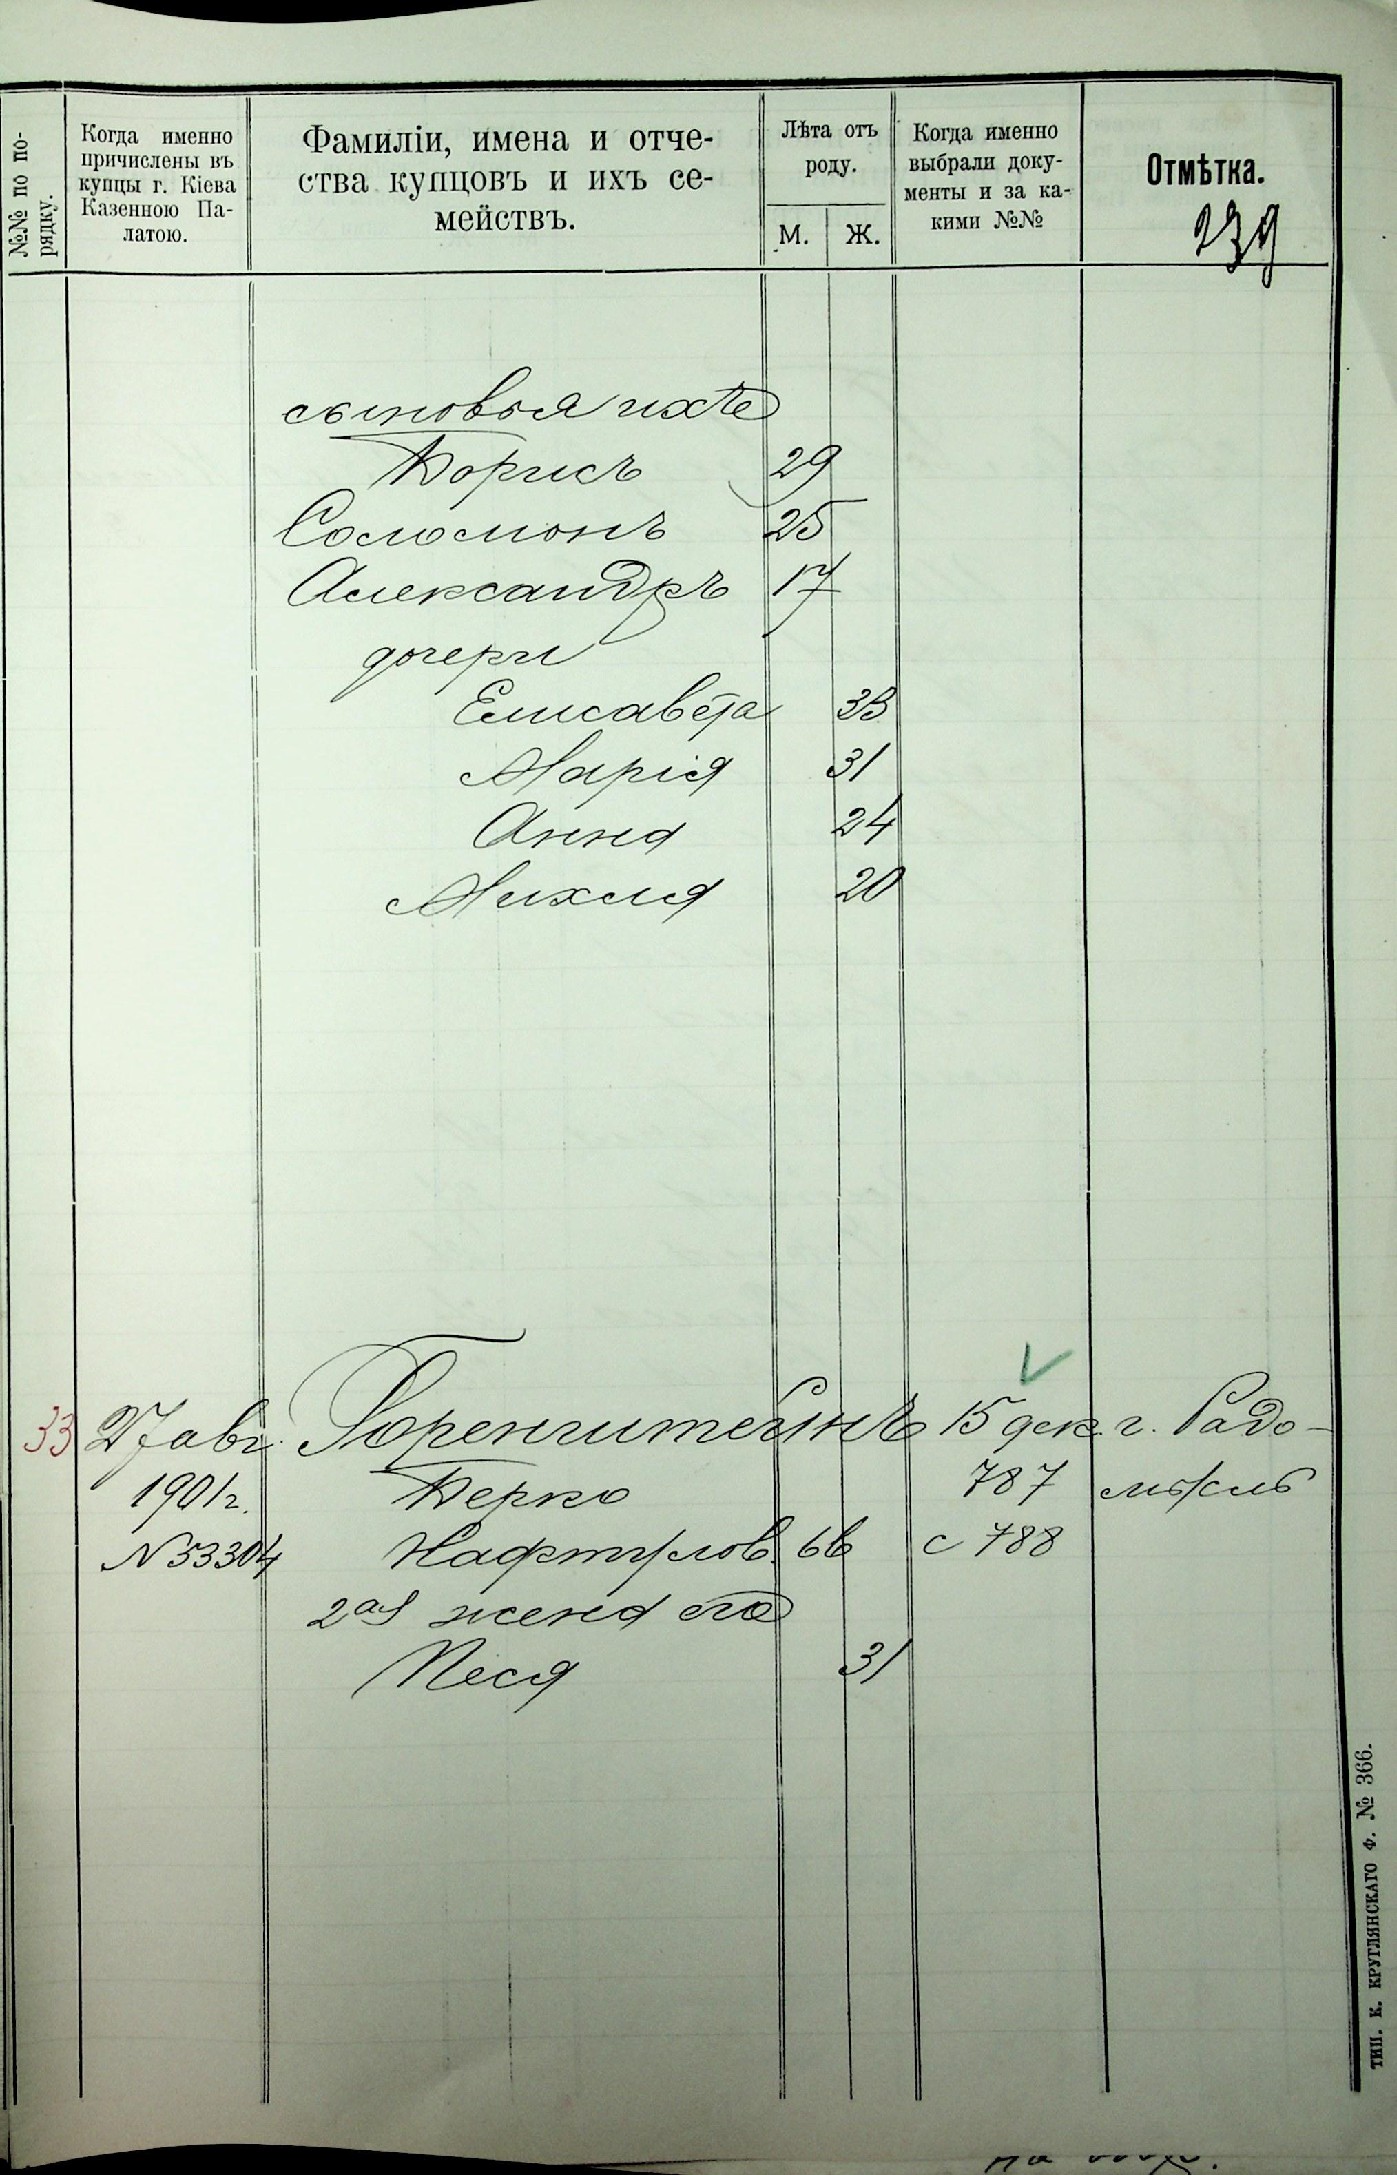 №№ по по-
рядку.
Когда именно
причислены въ
купцы г. Кіева
Казенною Па-
латою.
Фамиліи, имена и отче-
ства купцовъ и ихъ се-
мействъ.
Лѣта отъ
роду.
М. Ж.
Когда именно
выбрали доку-
менты и за ка-
кими №№
Отмѣтка.
239
сыновья ихъ
Борисъ 29
Соломонъ 25
Александръ 17
дочери
Елисавета 33
Марія 31
Анна 24
Михля 20
33 27 авг. Горенштейнъ 15 дек. г. Радо-
1901 г. Берко 787 мысль
N 53304 Нафтулов. 66 с 788
2ая жена его
Песя 31
тип. к. круглянскаго ф. № 366.